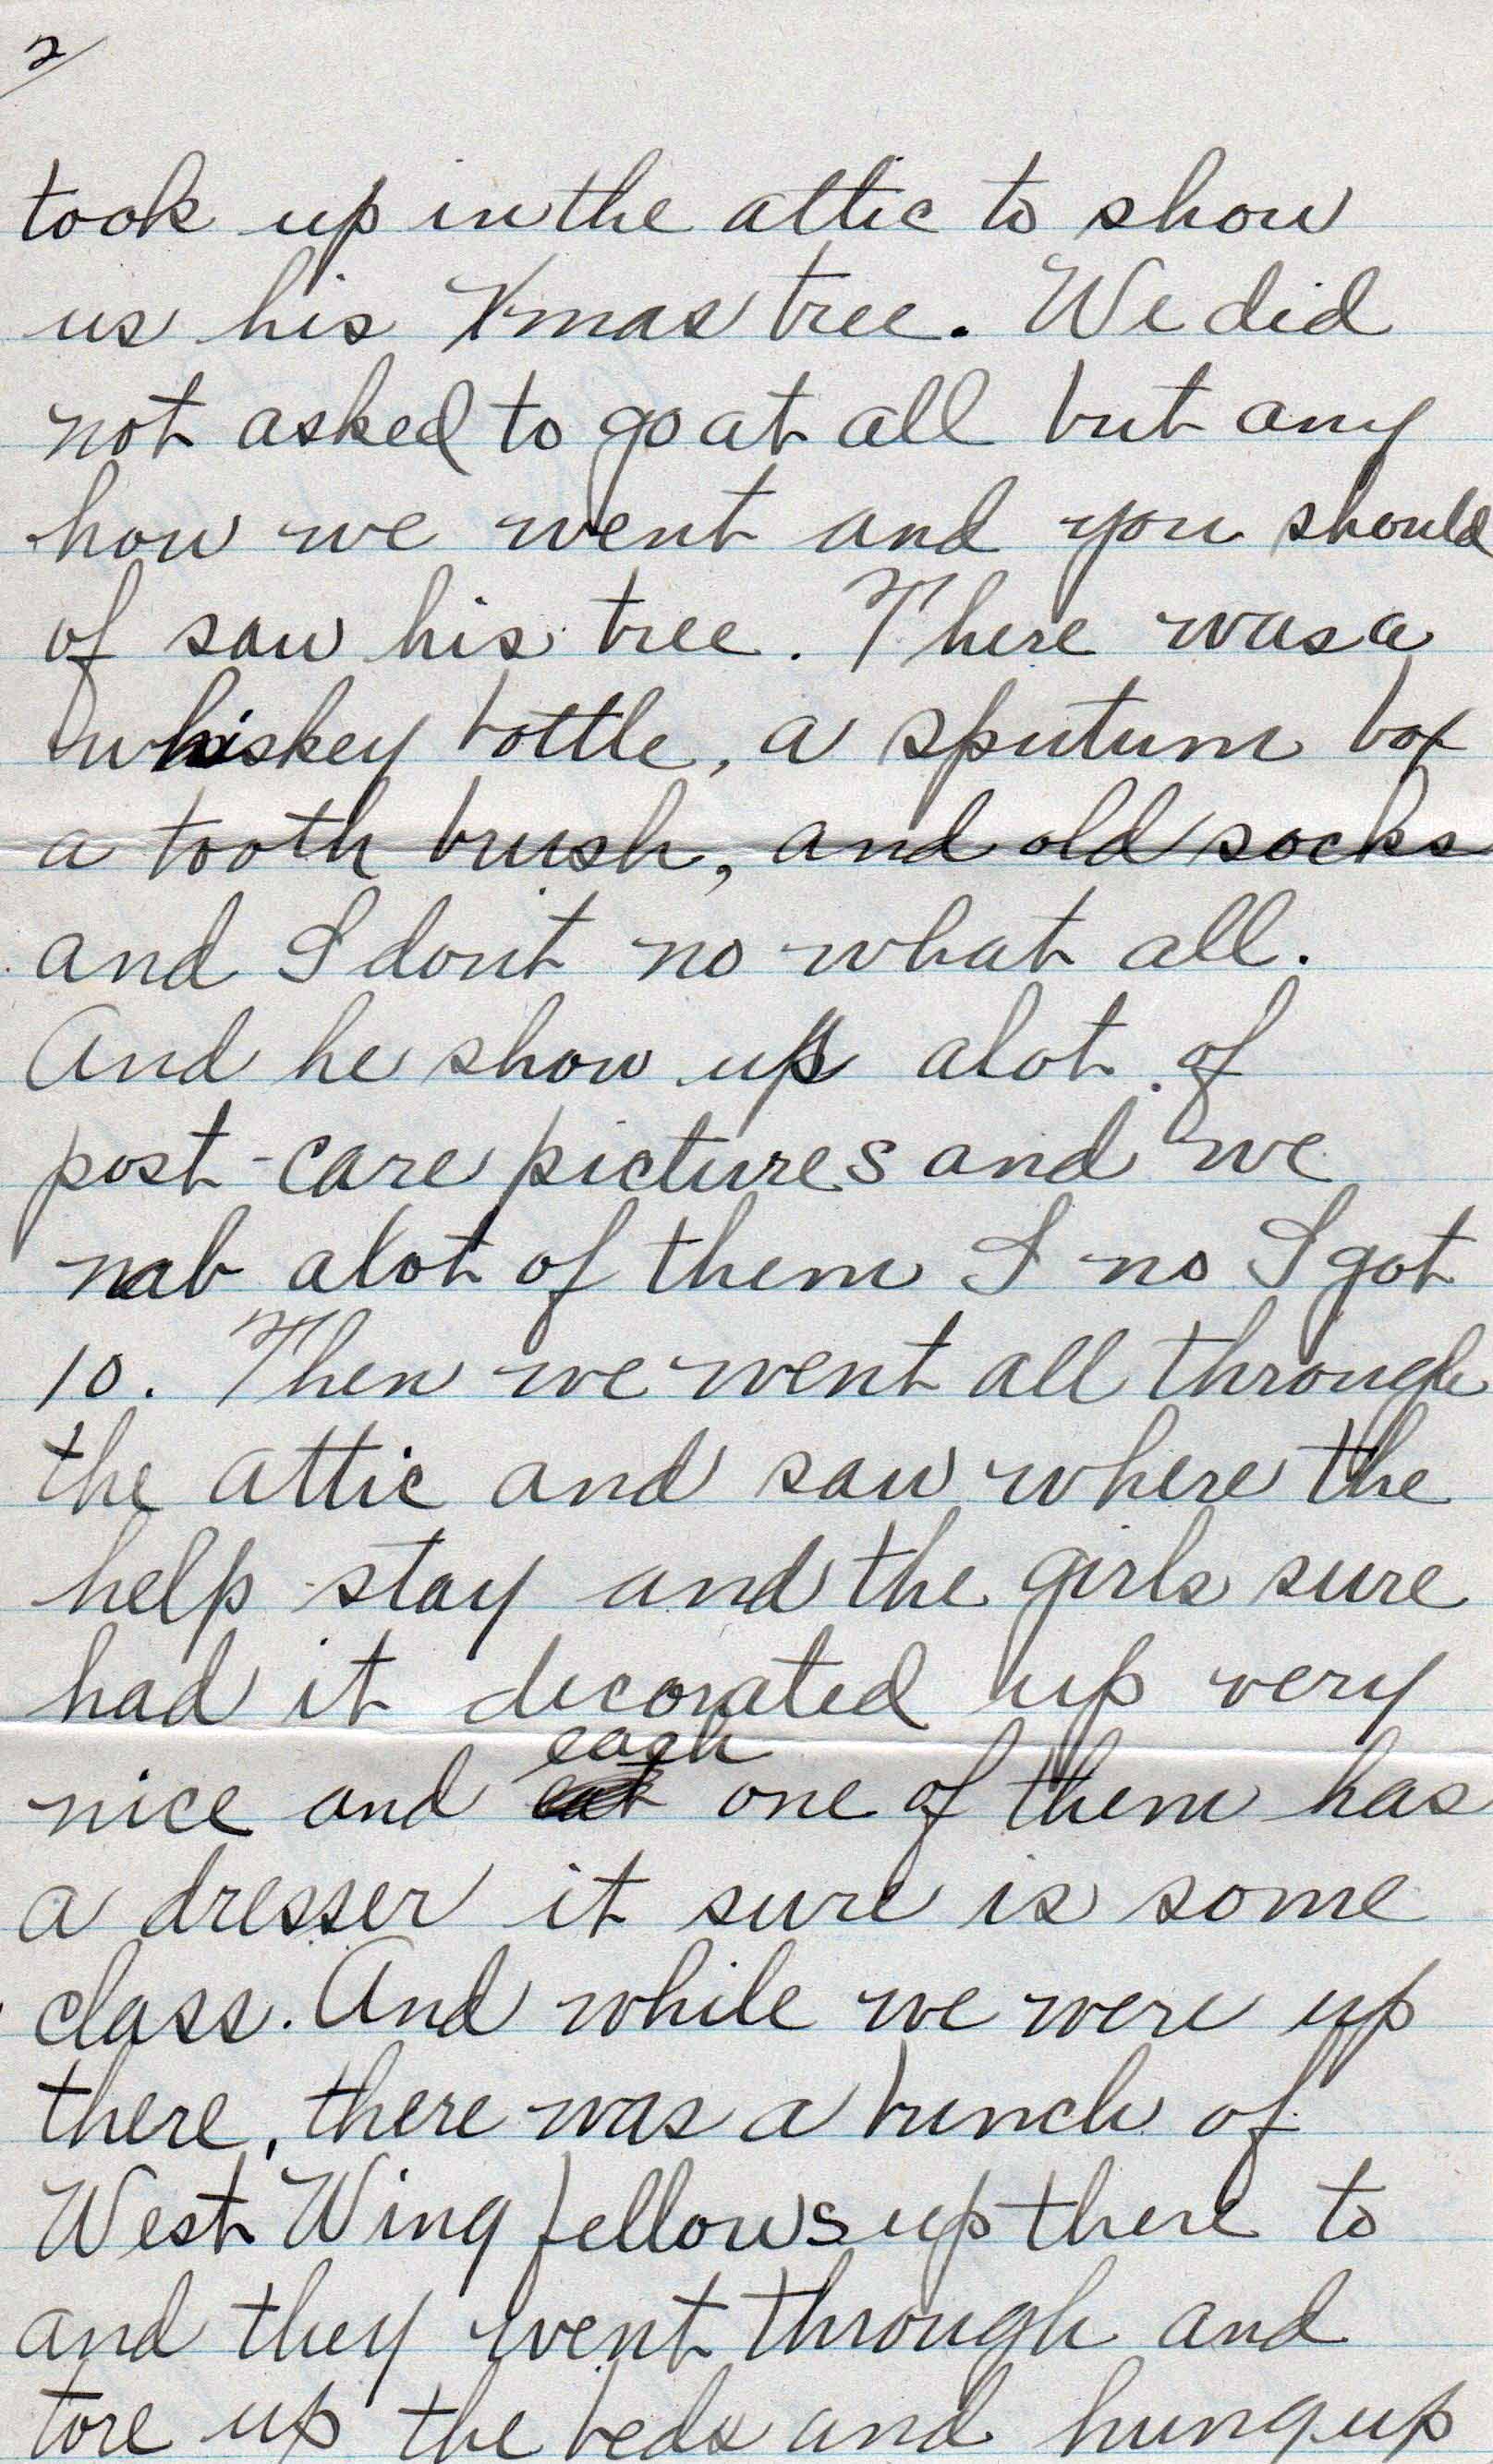 2/
took up in the attic to show
us his Xmas tree. We did
not asked to go at all but any
how we went and you should
of saw his tree. There was a
whiskey bottle, a sputum box
a tooth brush, and old socks
and I dont no what all.
And he show us alot of
post-care pictures and we
nab alot of them I no I got
10. Then we went all through
the attic and saw where the
help stay and the girls sure
had it decorated up very
nice and each one of them has
a dresser it sure is some
class. And while we were up
there, there was a bunch of
West Wing fellows up there to
and they went through and
tore up the beds and hung up